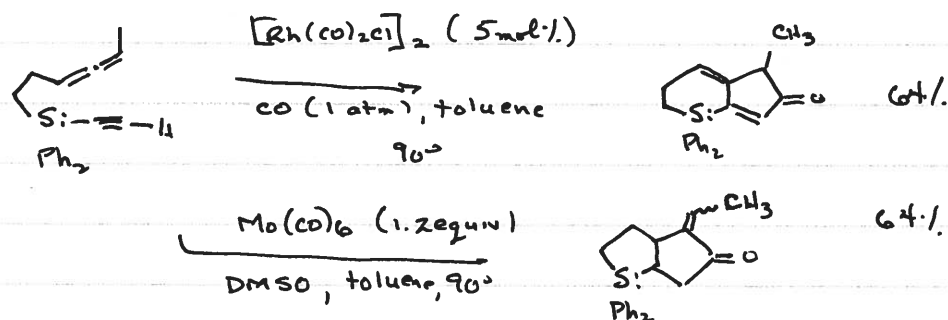 [Rh(CO)2Cl]2 (5mol%)
CO (1 atm), toluene
90°
Si
H
Ph2
CH3
O
Si
Ph2
64%
Mo(CO)6 (1.2equiv)
DMSO, toluene, 90°
CH3
O
Si
Ph2
64%